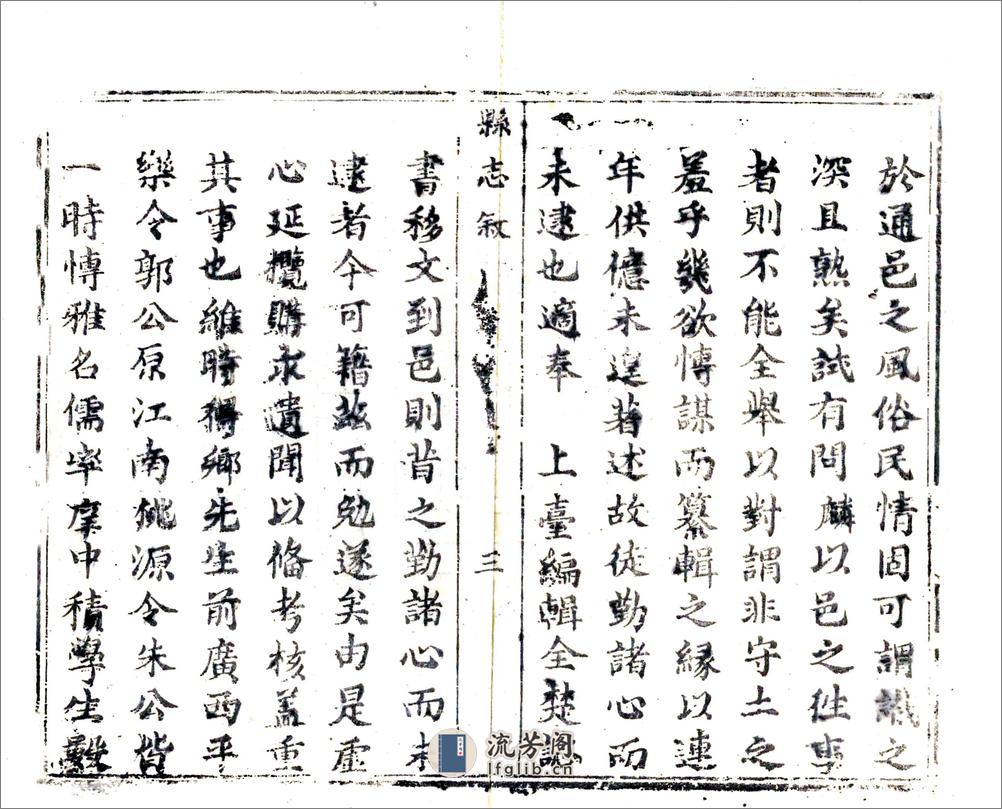 於通邑之風俗民情固可謂識之
深且熟矣試有問麟以邑之徃事
者則不能全舉以對謂非守土之
羞乎幾欲愽謀而纂輯之縁以連
年供億未遑著述故徒勤諸心而
未逮也適奉 上臺編輯全楚誌
縣志敘 三
書移文到邑則昔之勤諸心而未
逮者今可籍茲而勉遂矣由是虛
心延攬購求遺聞以俻考核盖重
其事也維時得鄉先生前廣西平
樂令郭公原江南桃源令朱公皆
一時愽雅名儒率庠中積學生
流芳阁
lfglib.cn